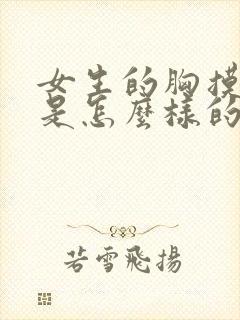 女生的胸摸
是怎麼樣的
若雪飛揚